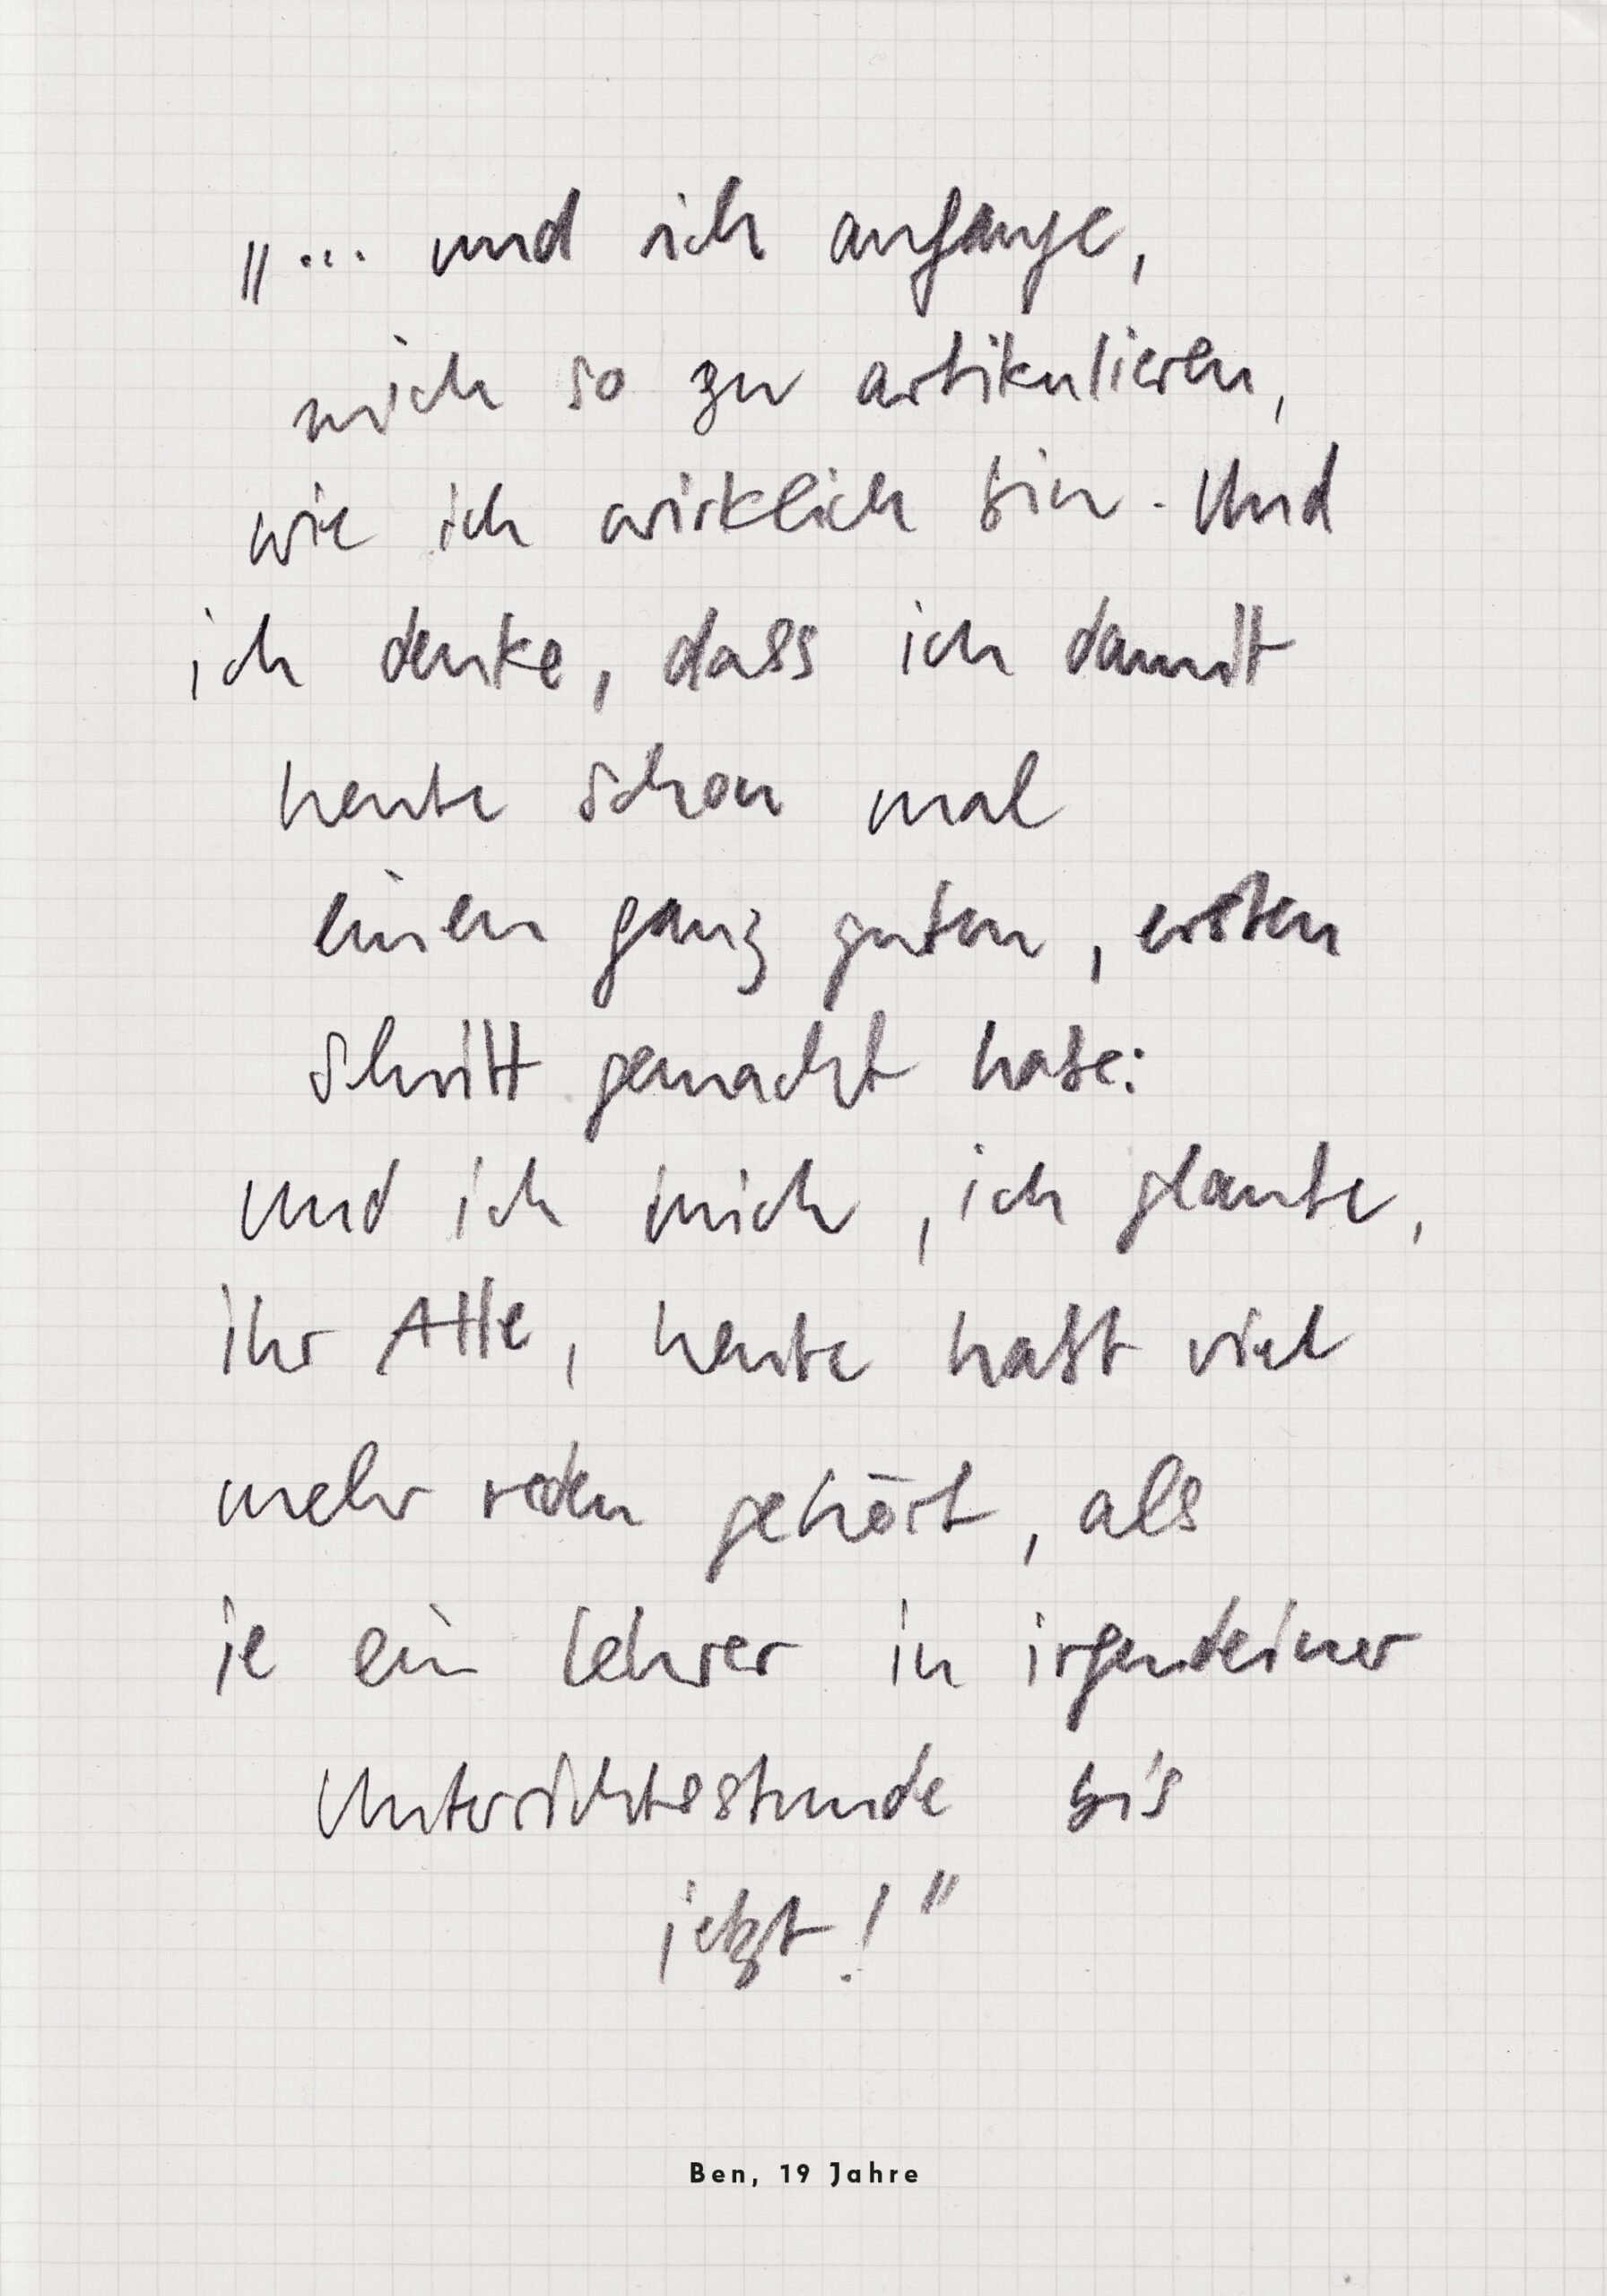 „... und ich anfange,
mich so zu artikulieren,
wie ich wirklich bin. Und
ich denke, dass ich damit
heute schon mal
einen ganz guten, ersten
Schritt gemacht habe:
Und ich mich, ich glaube,
ihr Alle, heute habt viel
mehr reden gehört, als
je ein Lehrer in irgendeiner
Unterichtsstunde bis
jetzt!"
Ben, 19 Jahre